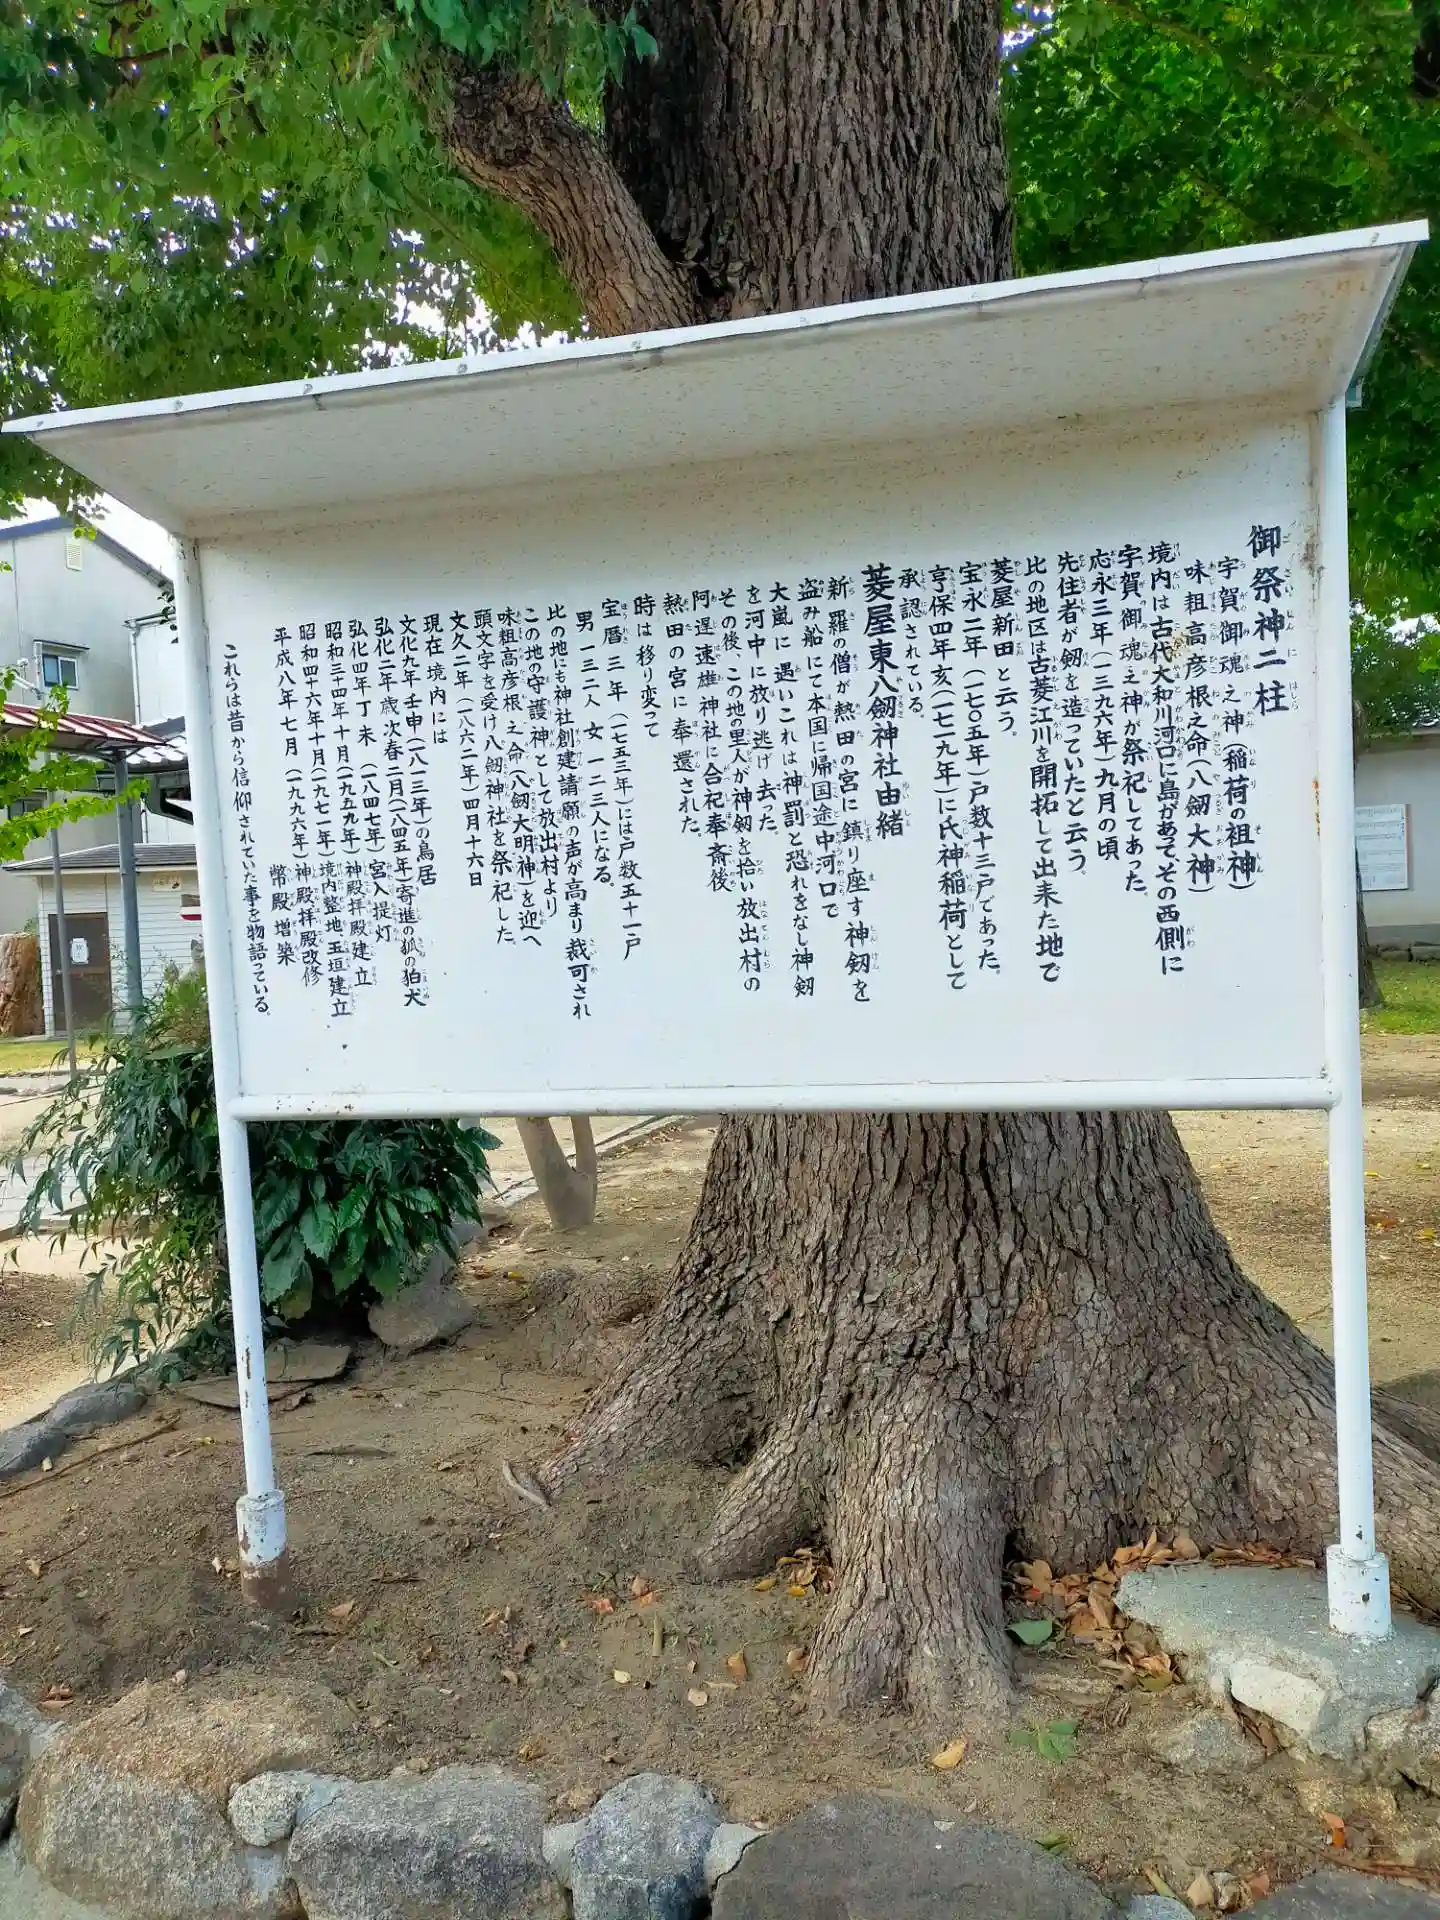 御祭神二柱
宇賀御魂之神(稲荷の祖神)
味耜高彦根之命(八劔大神)
境内は古代大和川河口に島があってその西側に
宇賀御魂之神が祭祀してあった。
応永三年(一三九六年)九月の頃
先住者が劔を造っていたと云う。
比の地区は古菱江川を開拓して出来た地で
菱屋新田と云う。
宝永二年(一七〇五年)戸数十三戸であった。
亨保四年亥(一七一九年)に氏神稲荷として
承認されている。
菱屋東八劔神社由緒
新羅の僧が熱田の宮に鎮り座す神剱を
盗み船にて本国に帰国途中河口で
大嵐に遇いこれは神罰と恐れをなし神剱
を河中に放り逃げ去った。
その後、この地の里人が神剱を拾い放出村の
阿遅速雄神社に合祀奉斎後
熱田の宮に奉還された。
時は移り変って
宝暦三年(一七五三年)には戸数五十一戸
男一三二人女一二三人になる。
比の地にも神社創建請願の声が高まり裁可され
この地の守護神として放出村より
味耜高彦根之命(八劔大明神)を迎へ
頭文字を受け八劔神社を祭祀した。
文久二年(一八六二年)四月十六日
現在境内には
文化九年壬申(一八一三年)の鳥居
弘化二年歳次春二月(一八四五年)寄進の狐の狛犬
弘化四年丁未(一八四七年)宮入提灯
昭和三十四年十月(一九五九年)神殿拝殿建立
昭和四十六年十月(一九七一年)境内整地玉垣建立
平成八年七月(一九九六年)神殿拝殿改修
幣殿増築
これらは昔から信仰されていた事を物語っている。